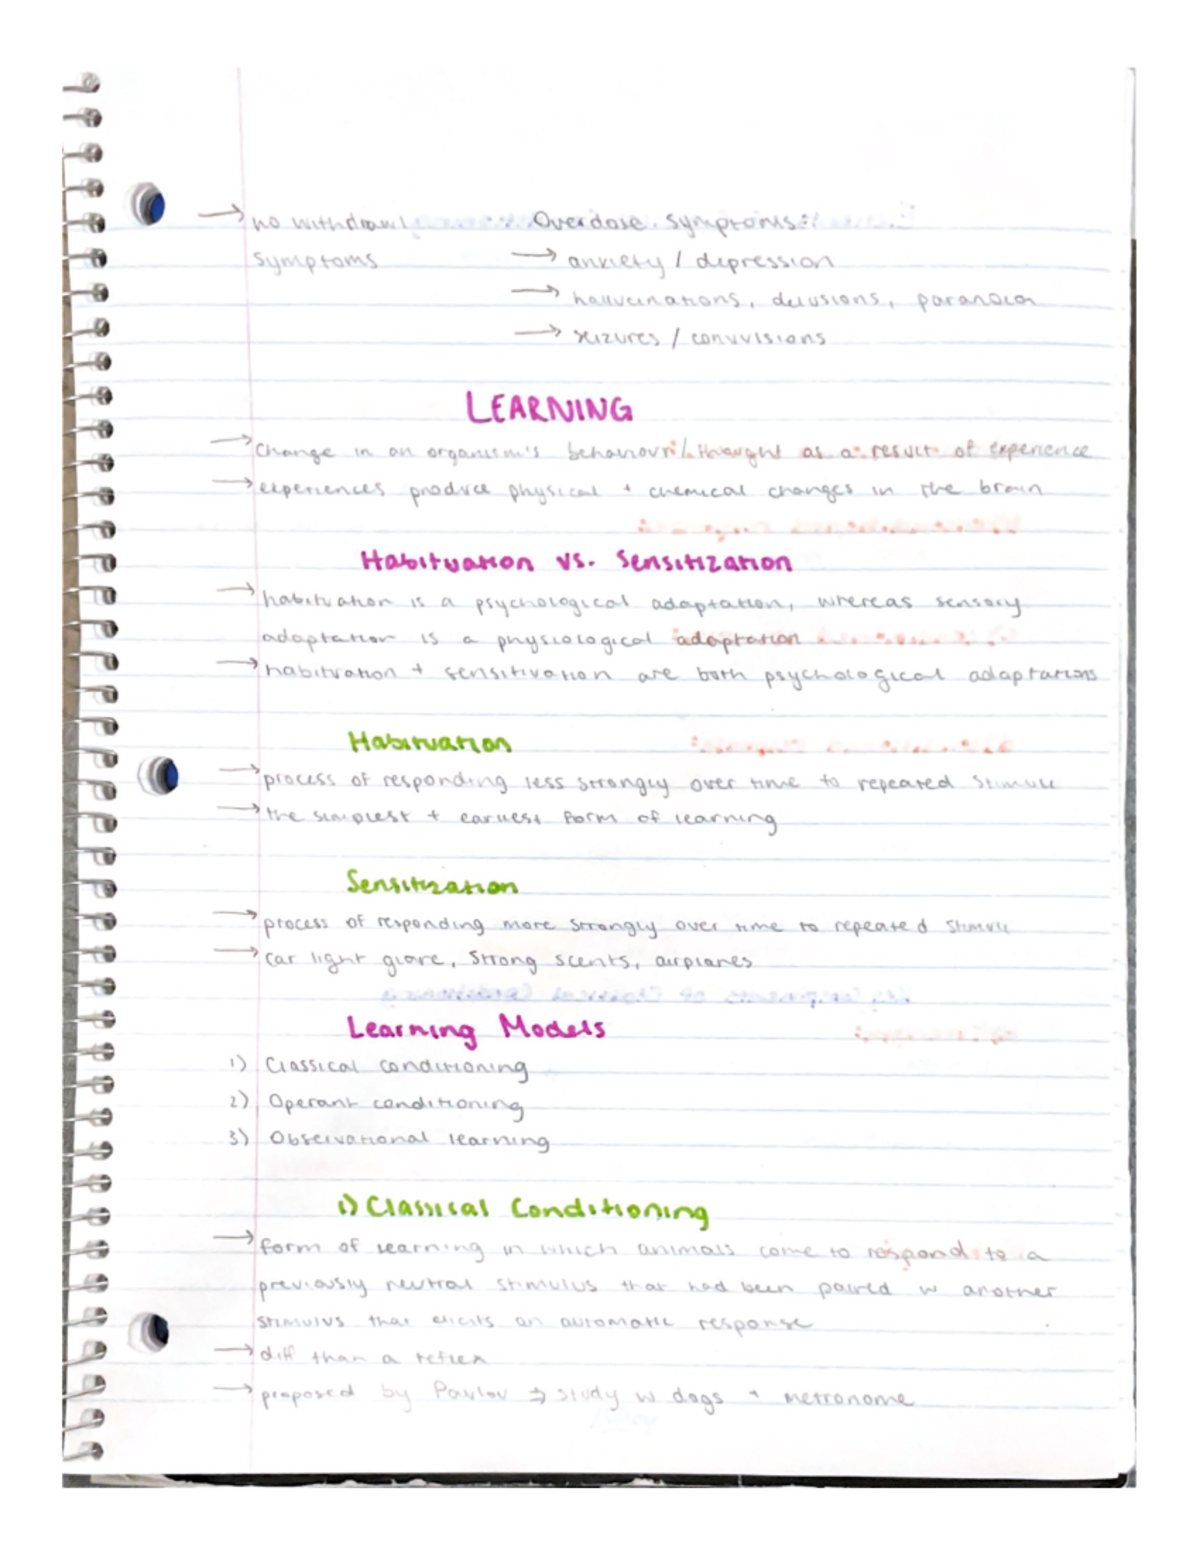 → no withdrawl Overdose symptoms:
symptoms → anxiety / depression
→ hallucinations, delusions, paranoia
→ seizures / convulsions
LEARNING
→ change in an organism's behaviour/thought as a result of experience
→ experiences produce physical + chemical changes in the brain
Habituation vs. Sensitization
→ habituation is a psychological adaptation, whereas sensory
adaptation is a physiological adaptation
→ habituation + sensitivation are both psychological adaptations
Habituation
→ process of responding less strongly over time to repeated stimuli
→ the simplest + earliest form of learning
Sensitization
→ process of responding more strongly over time to repeated stimuli
→ car light glare, strong scents, airplanes
Learning Models
1) Classical conditioning
2) Operant conditioning
3) Observational learning
1) Classical Conditioning
→ form of learning in which animals come to respond to a
previously neutral stimulus that had been paired w another
stimulus that elicits an automatic response
→ diff than a reflex
→ proposed by Pavlov → study w dogs + metronome